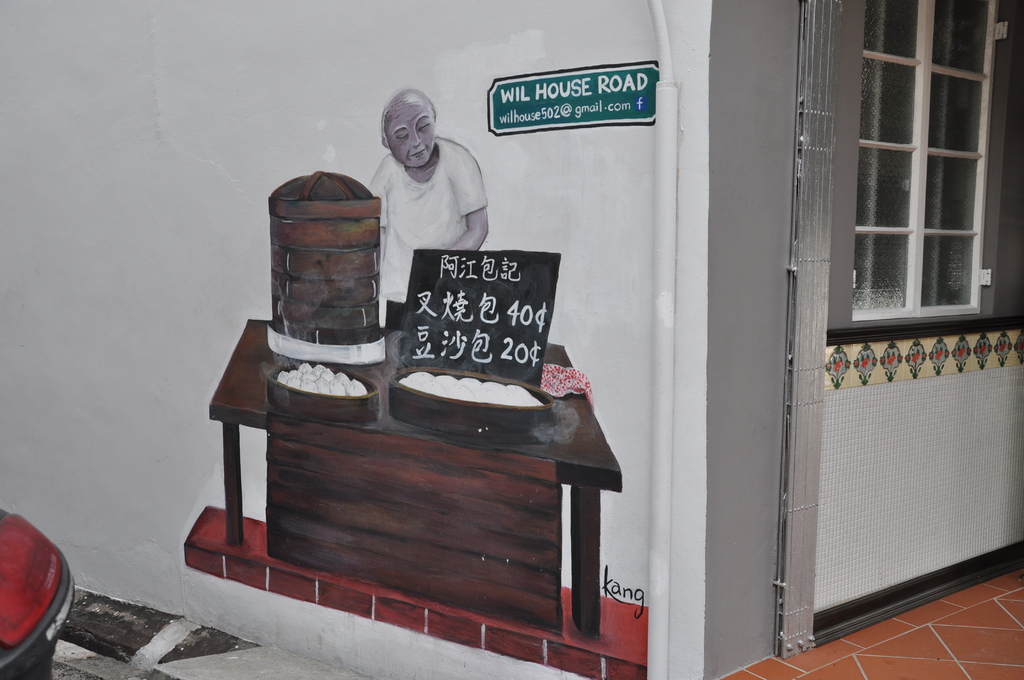 WIL HOUSE ROAD
wilhouse502@gmail.com f
阿江包記
叉燒包 40¢
豆沙包 20¢
kang